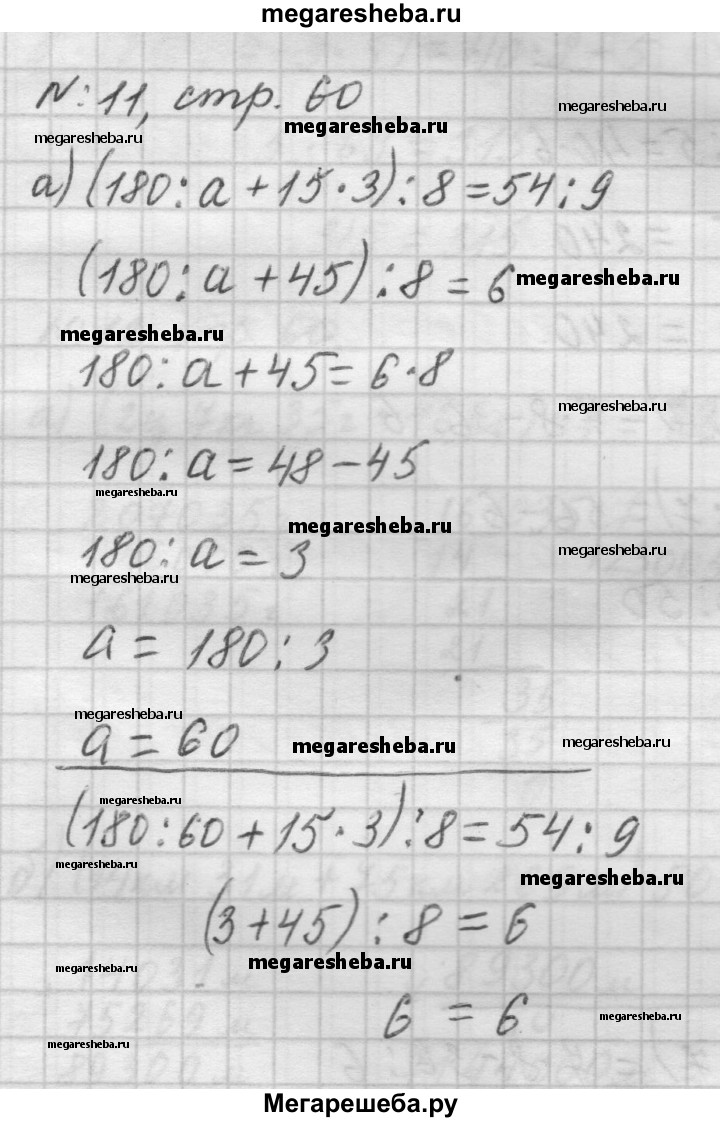 megaresheba.ru
№: 11, стр. 60
megaresheba.ru
megaresheba.ru
megaresheba.ru
а) (180 : а + 15 · 3) : 8 = 54 : 9
(180 : а + 45) : 8 = 6
megaresheba.ru
megaresheba.ru
180 : а + 45 = 6 · 8
megaresheba.ru
180 : а = 48 - 45
megaresheba.ru
megaresheba.ru
180 : а = 3
megaresheba.ru
megaresheba.ru
а = 180 : 3
megaresheba.ru
а = 60
megaresheba.ru
megaresheba.ru
megaresheba.ru
(180 : 60 + 15 · 3) : 8 = 54 : 9
megaresheba.ru
megaresheba.ru
(3 + 45) : 8 = 6
megaresheba.ru
6 = 6
megaresheba.ru
megaresheba.ru
Мегарешеба.ру